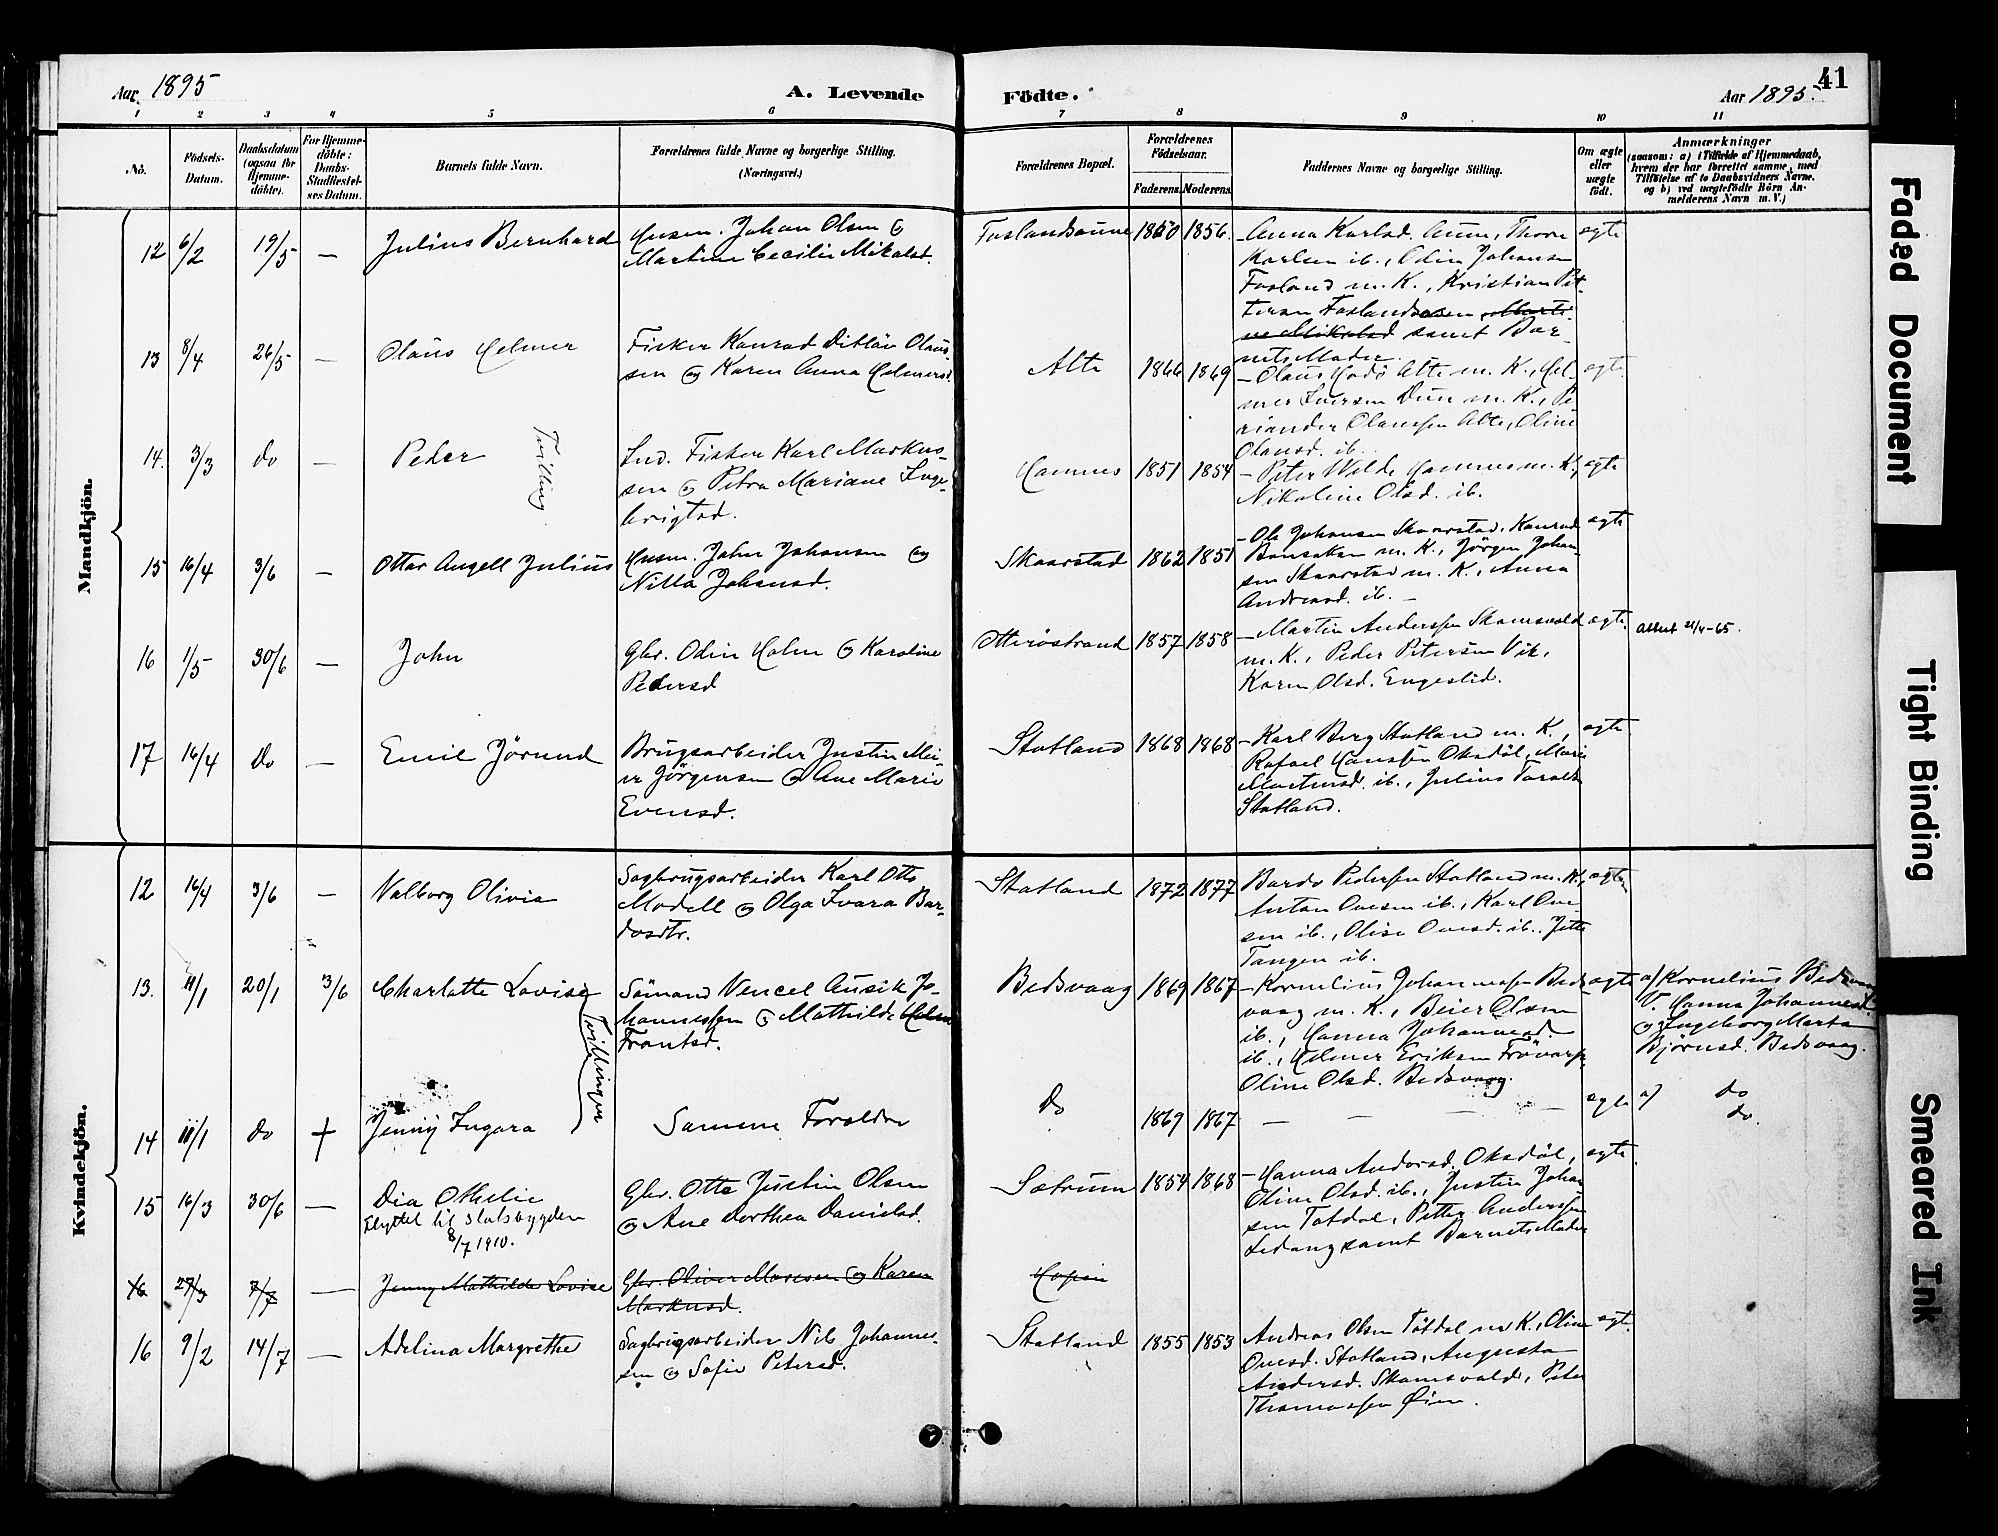 Aar 1895
A. Levende
Födte.
Aar 1895.
41
1 2 3 4 5 6 7 8 9 10 11
No.
Födsels-
Datum.
Daabsdatum
(ogsaa for
Hjemme-
döbte).
For Hjemme-
döbte:
Daabs-
Stadfæstel-
ses Datum.
Barnets fulde Navn.
Forældrenes fulde Navne og borgerlige Stilling.
(Næringsvei.)
Forældrenes Bopæl.
Forældrenes
Födselsaar.
Faderens. Moderens.
Faddernes Navne og borgerlige Stilling.
Om ægte
eller
uægte
födt.
Anmærkninger
(saasom: a) i Tilfælde af Hjemmedaab,
hvem der har forrettet samme, med
Tilföielse af to Daabsvidners Navne,
og b) ved uægtefödte Börn An-
melderens Navn m. V.)
Mandkjön.
12 6/2 19/5 — Julius Bernhard
Husm. Johan Olsen &
Martine Cecilie Mikalsd.
Foslandsaune 1850 1856.
Anna Karlsd. Aune, Thore
Karlsen ib., Odin Johansen
Fosland m. K., Kristian Pet-
tersen Foslandsosen, Marti-
ne Mikalsd samt Bar-
nets Moder.
ægte
13 8/4 26/5 — Olaus Helmer
Fisker Konrad Ditlöv Olaus-
sen & Karen Anna Helmersd.
Alte 1866 1869
— Olaus Hodö Alte m. K., Hel-
mer Iversen Duun m. K., Pe-
riander Olaussen Alte, Oline
Olausd. ib.
ægte
14. 3/3 do — Peder
Tvilling
Ind. Fisker Karl Markus-
sen & Petra Mariane Inge-
brigtsd.
Hamnes 1851 1854
— Peter Wolde Hamnes m. K.,
Nikoline Olsd. ib.
ægte
15 16/4 3/6 — Ottar Angell Julius
Husm. Johan Johansen og
Nilla Johansd.
Skaarstad 1862 1851
— Ole Johansen Skaarstad, Konrad
m. K., Jörgen Johan-
sen Skaarstad m. K., Anna
Andreasd. ib. —
ægte
16 1/5 30/6 — John
Gbr. Odin Holm & Karoline
Pedersd
Otteröstrand 1857 1858
— Martin Anderssen Skomsvold
m. K., Peder Petersen Vik,
Karen Olsd. Engeslid.
ægte
Attest 21/4-65.
17 16/4 do — Emil Jörund
Brugsarbeider Justin Mei-
er Jörgensen & Ane Marie
Evensd.
Statland 1868 1868
— Karl Berg Statland m. K.,
Rafael Hanssen Oksdöl, Marie
Martinsd. ib., Julius
Statland.
ægte
Kvindekjön.
12 16/4 3/6 — Valborg Olivia
Sagbrugsarbeider Karl Otto
Modell & Olga Ivara Bar-
dosdtr.
Statland 1872 1877
Bardo Pedersen Statland m. K.,
Anton Ovesen ib., Karl Ove-
sen ib., Olise Ovesd. ib., Jette
Tangen ib.
ægte
13. 11/1 20/1 3/6 Charlotte Lovise
Tvillinger
Sömand Vencel Ausik Jo-
hannessen & Mathilde Helm
Frantsd.
Bedsvaag 1869 1867
— Kornelius Johannessen Beds-
vaag m. K., Beier Olsen
ib., Hanna Johannesd.
ib., Helmer Eriksen
Oline Olsd. Bedsvaag.
ægte
a) Kornelius Bedsvaag
V. Hanna Johannesd.
& Ingeborg Marta
Björnsd. Bedsvaag.
14 11/1 do + Jenny Ingara
Samme Foreldre
do 1869 1867 — — — —
ægte a) do
do.
15 16/3 30/6 — Dia Othelie
Flyttet til Statsbygden
8/7 1910.
Gbr. Otto Justin Olsen
& Ane Dorthea Danielsd.
Sætrum 1854 1868
— Hanna Andorsd. Oksdöl,
Oline Olsd. ib., Justin Johan-
sen Tötdal, Petter Anderssen
Ledang samt Barnets Moder
ægte.
16 27/3 7/7 — Jenny Mathilde Lovise
Gbr. Oliver Mosesen & Karen
Markusd.
16 9/2 14/7 — Adelina Margrethe
Sagbrugsarbeider Nils Johannes-
sen & Sofie Petersd.
Statland 1855 1853
Andreas Olsen Tötdal m K., Oline
Ovesd. Statland, Augusta
Andersd. Skomsvold, Peter
Thomassen Öien.
ægt.
Faded Document
Tight Binding
Smeared Ink